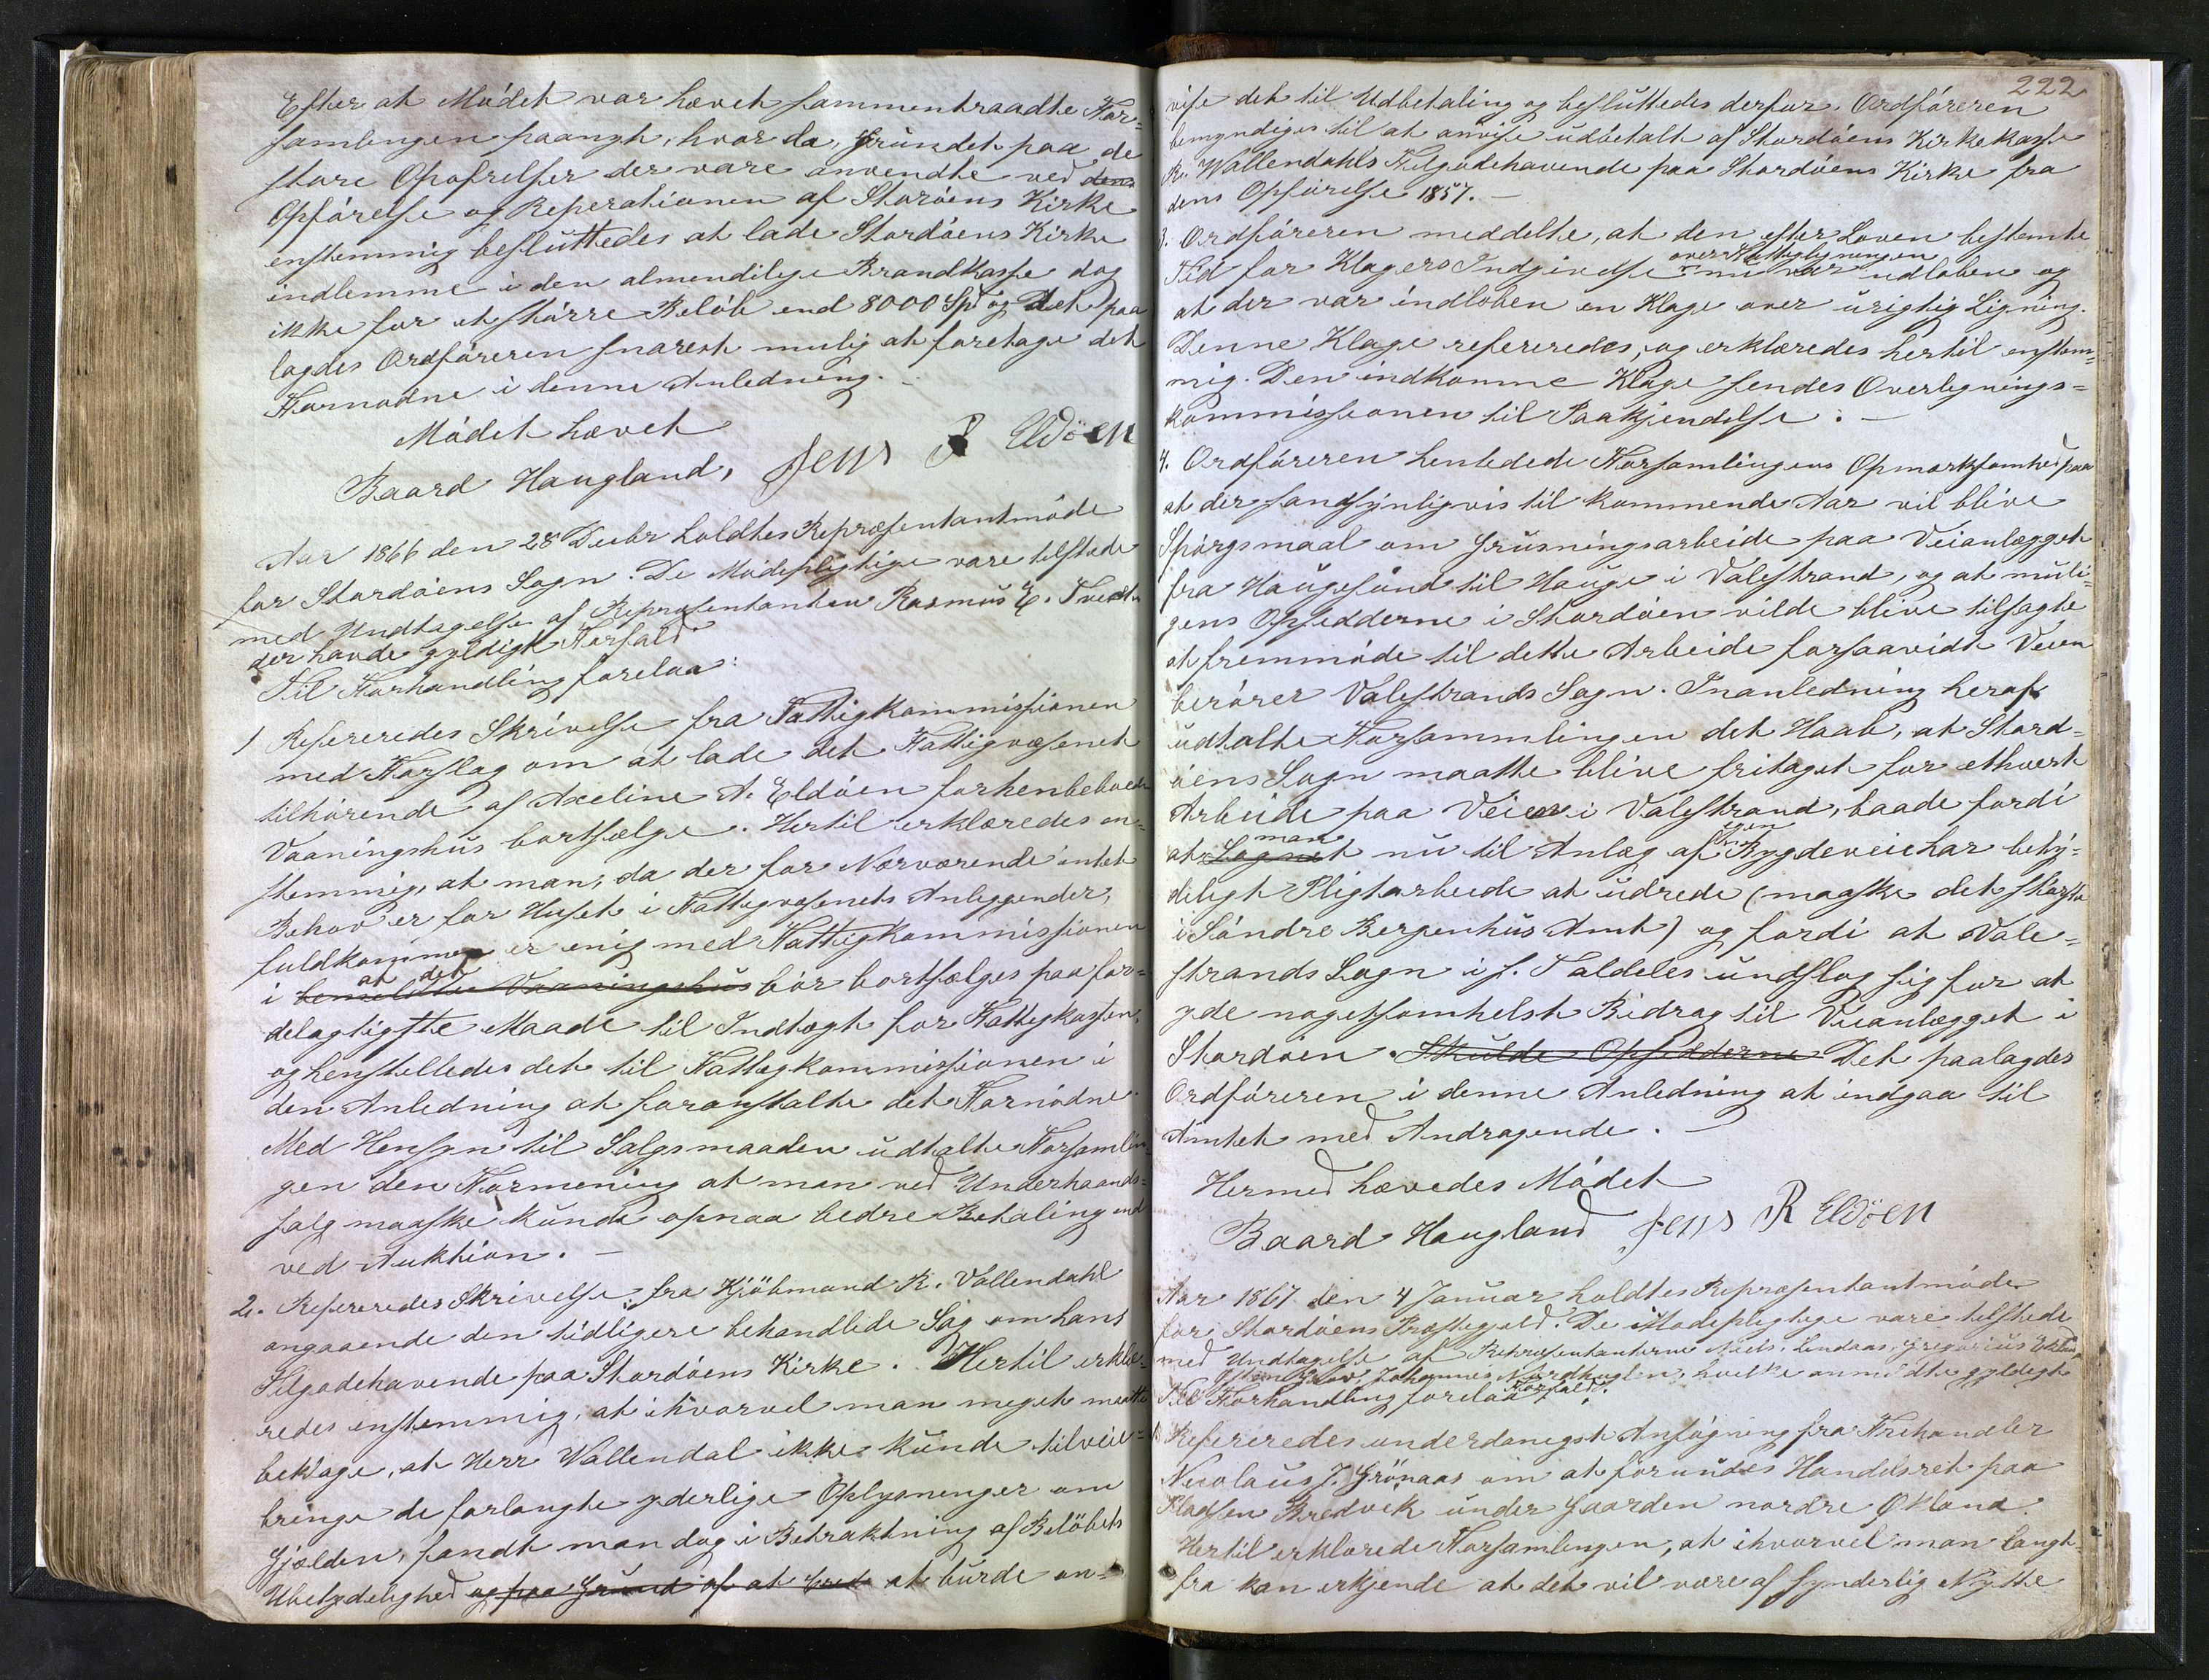 Efter at Mødet var hævet sammentraadte For-
samlingen paanyt, hvor da, grundet paa de
store Opofrelser der vare anvendte ved dens
Opførelse og Reperationen af Storøens Kirke
enstemmig besluttedes at lade Stordøens Kirke
indlemme i den almindelige Brandkasse dog
ikke for et større Beløb end 8000 Spd og Det paa
lagdes Ordføreren snarest mulig at foretage det
Fornødne i denne Anledning. -
Mødet hævet
Baard Haugland, Jens R Eldöen
Aar 1866 den 28 Decbr holdtes Repræsentantmøde
for Stordøens Sogn. De Mødepligtige vare tilstede
med Undtagelse af Repræsentanten Rasmus E. Tveita
der havde gyldigt Forfald
Til Forhandling forelaa:
1 Refereredes Skrivelse fra Fattigkommissionen
med Forslag om at lade det Fattigvæsenet
tilhørende af Axeline A. Eldøen forhenbeboede
Vaaningshus bortsælge. Hertil erklæredes en-
stemmig, at man, da der for Nærværende intet
Behov er for Huset i Fattigvæsenets Anliggender,
fuldkommen er enig med Fattigkommissionen
at det
i bemeldte Vaaningshus bør bortsælges paa for-
delagtigste Maade til Indtægt for Fattigkassen,
og henstilledes det til Fattigkommissionen i
den Anledning at foranstalte det Fornødne.
Med Hensyn til Salgsmaaden udtalte Forsamlin-
gen den Formening at man ved Underhaands-
salg maaske kunde opnaa bedre Betaling end
ved Auktion. -
2. Refereredes Skrivelse fra Kjöbmand R. Vallendahl
angaaende den tidligere behandlede Sag om hans
Tilgodehavende paa Stordøens Kirke. Hertil erklæ-
redes enstemmig, at ihvorvel man meget maatte
beklage, at Herr Wallendal ikke kunde tilveie-
bringe de forlangte yderlige Oplysninger om
Gjælden, fandt man dog i Betraktning af Beløbets
Ubetydelighed og paa Grund af at at burde an-
222
vise det til Udbetaling og besluttedes derfor. Ordføreren
bemyndiges til at anvise udbetalt af Stordøens Kirkekasse
R. Wallendahls Tilgodehavende paa Stordøens Kirke fra
dens Opførelse 1857. -
3. Ordføreren meddelte, at den efter Loven bestemte
over Fattigligningen
Tid for Klagers Indgivelse nu var udløben og
at der var indløben en Klage over urigtig Ligning.
Denne Klage refereredes, og erklæredes hertil enstem-
mig. Den indkomne Klage sendes Overlignings-
kommissionen til Paakjendelse. -
4. Ordføreren henledede Forsamlingens Opmærksomhed paa
at der sandsynligvis til kommende Aar vil blive
Spørgsmaal om Grusningsarbeide paa Veianlægget
fra Haugesund til Hauge i Valestrand, og at muli-
gens Opsidderne i Stordøen vilde blive tilsagte
at fremmøde til dette Arbeide forsaavidt Veien
berører Valestrands Sogn. I Anledning heraf
udtalte Forsammlingen det Haab, at Stord-
øens Sogn maatte blive fritaget for ethvert
Arbeide paa Veien i Valestrand, baade fordi
man egen
at Sognet nu til Anlæg af Bygdeveie har bety-
deligt Pligtarbeide at udrede (maaske det største
i Søndre Bergenhus Amt) og fordi at Vale-
strands Sogn i s. T aldeles undslog sig for at
yde nogetsomhelst Bidrag til Veianlægget i
Stordøen. Skulde Opsidderne Det paalagdes
Ordføreren i denne Anledning at indgaa til
Amtet med Andragende. -
Hermed hævedes Mødet
Baard Haugland Jens R Eldöen
Aar 1867 den 4 Januar holdtes Repræsentantmøde
for Stordøens Præstegjeld. De Mødepligtige vare tilstede
med Undtagelse af Repræsentanterne Niels Lindaas, Gregorius
Johannes Nordhuglen, hvilke anmeldte gyldigt
Til Forhandling forelaa Forfald:
1 Refereredes underdanigst Ansøgning fra Frihandler
Nicolaus J. Grönaas om at forundes Handelsret paa
Pladsen Bredvik under Gaarden nordre Økland.
Hertil erklærede Forsamlingen, at ihvorvel man langt
fra kan erkjende at det vil være af synderlig Nytte